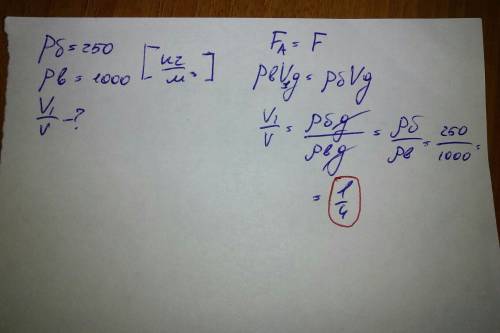 ρб = 250
ρв = 1000 [кг/м³]
V₁/V - ?
F_A = F
ρвV₁g = ρбVg
V₁/V = ρбg/ρвg = ρб/ρв = 250/1000 =
= 1/4